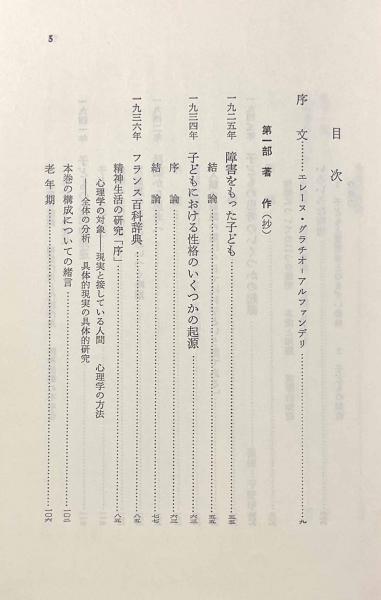 5
目次
序文………エレーヌ・グラチオ＝アルファンデリ………九
第一部 著作（抄）
一九二五年 障害をもった子ども………三五
結論………五五
一九三四年 子どもにおける性格のいくつかの起源………六三
序論………六三
結論………七七
一九三六年 フランス百科辞典………八五
精神生活の研究「序」………八五
心理学の対象――現実と接している人間 心理学の方法
――全体の分析 具体的現実の具体的研究
本巻の構成についての緒言………一〇二
老年期………一〇六